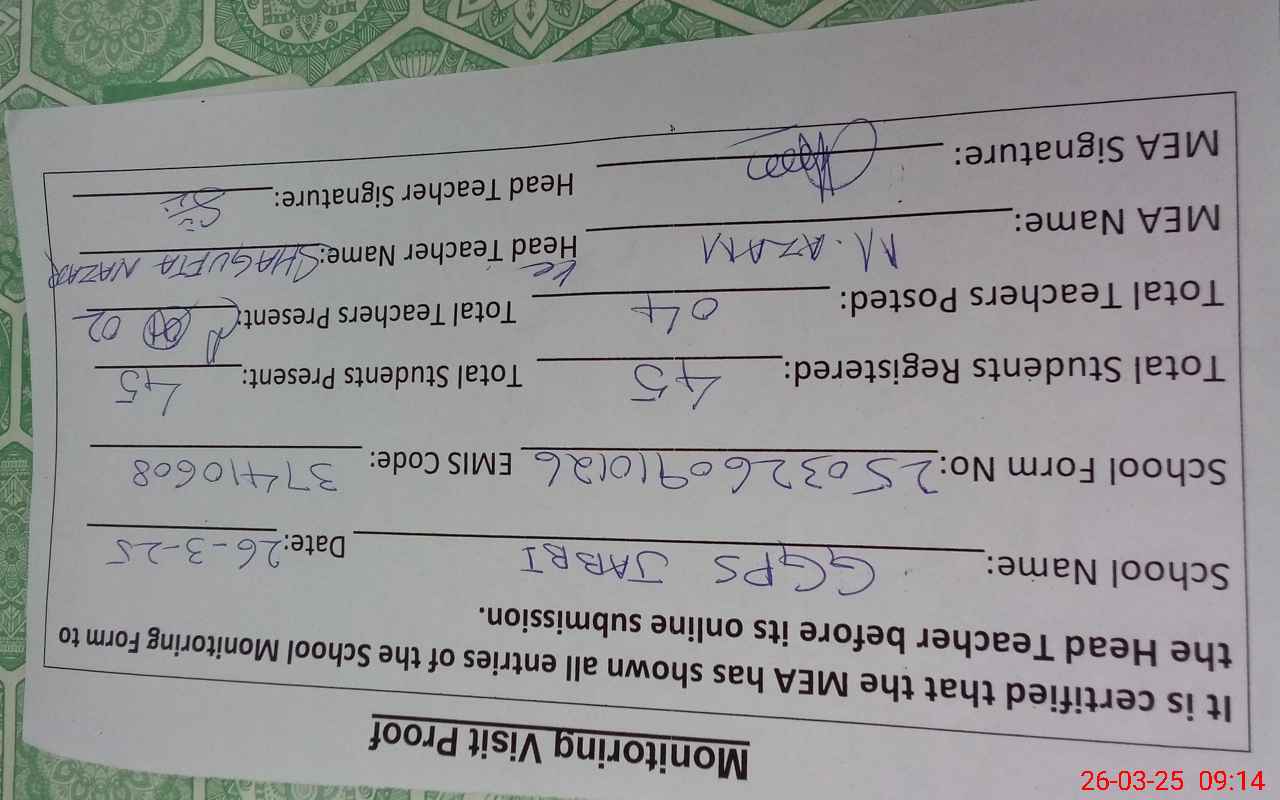 Monitoring Visit Proof
It is certified that the MEA has shown all entries of the School Monitoring Form to
the Head Teacher before its online submission.
School Name: GGPS JABBI Date: 26-3-25
School Form No: 2503260910126 EMIS Code: 37410608
Total Students Registered: 45 Total Students Present: 45
Total Teachers Posted: 04 Total Teachers Present: 02
MEA Name: M. AZAM Head Teacher Name: SHAGUFTA NAZAR
MEA Signature: Head Teacher Signature:
26-03-25 09:14